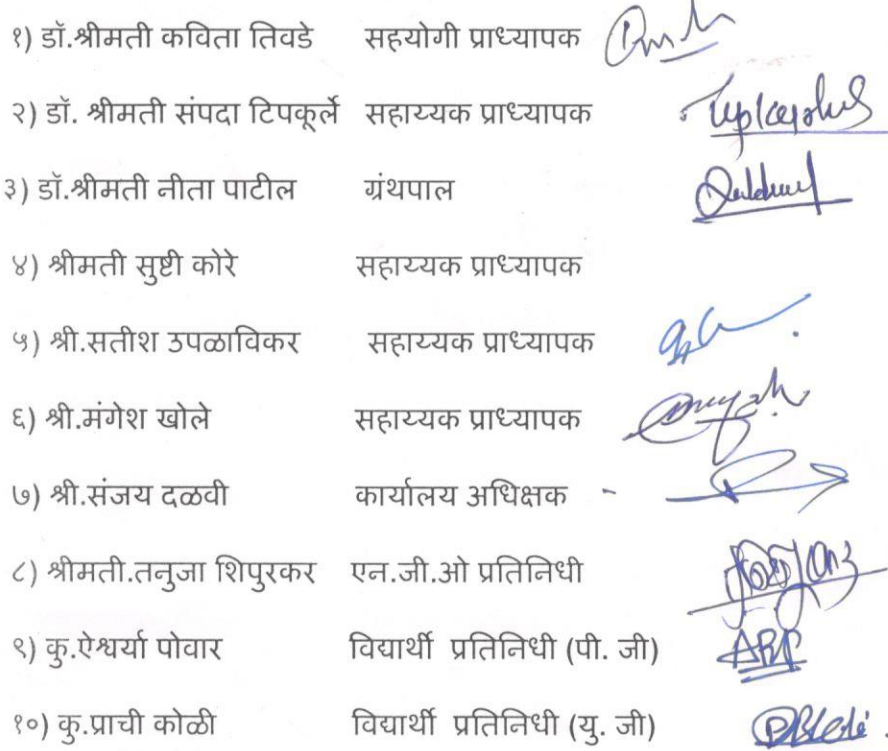 १) डॉ.श्रीमती कविता तिवडे सहयोगी प्राध्यापक
२) डॉ. श्रीमती संपदा टिपकूर्ले सहाय्यक प्राध्यापक
३) डॉ.श्रीमती नीता पाटील ग्रंथपाल
४) श्रीमती सुष्टी कोरे सहाय्यक प्राध्यापक
५) श्री.सतीश उपळाविकर सहाय्यक प्राध्यापक
६) श्री.मंगेश खोले सहाय्यक प्राध्यापक
७) श्री.संजय दळवी कार्यालय अधिक्षक -
८) श्रीमती.तनुजा शिपुरकर एन.जी.ओ प्रतिनिधी
९) कु.ऐश्वर्या पोवार विद्यार्थी प्रतिनिधी (पी. जी) ARP
१०) कु.प्राची कोळी विद्यार्थी प्रतिनिधी (यु. जी)